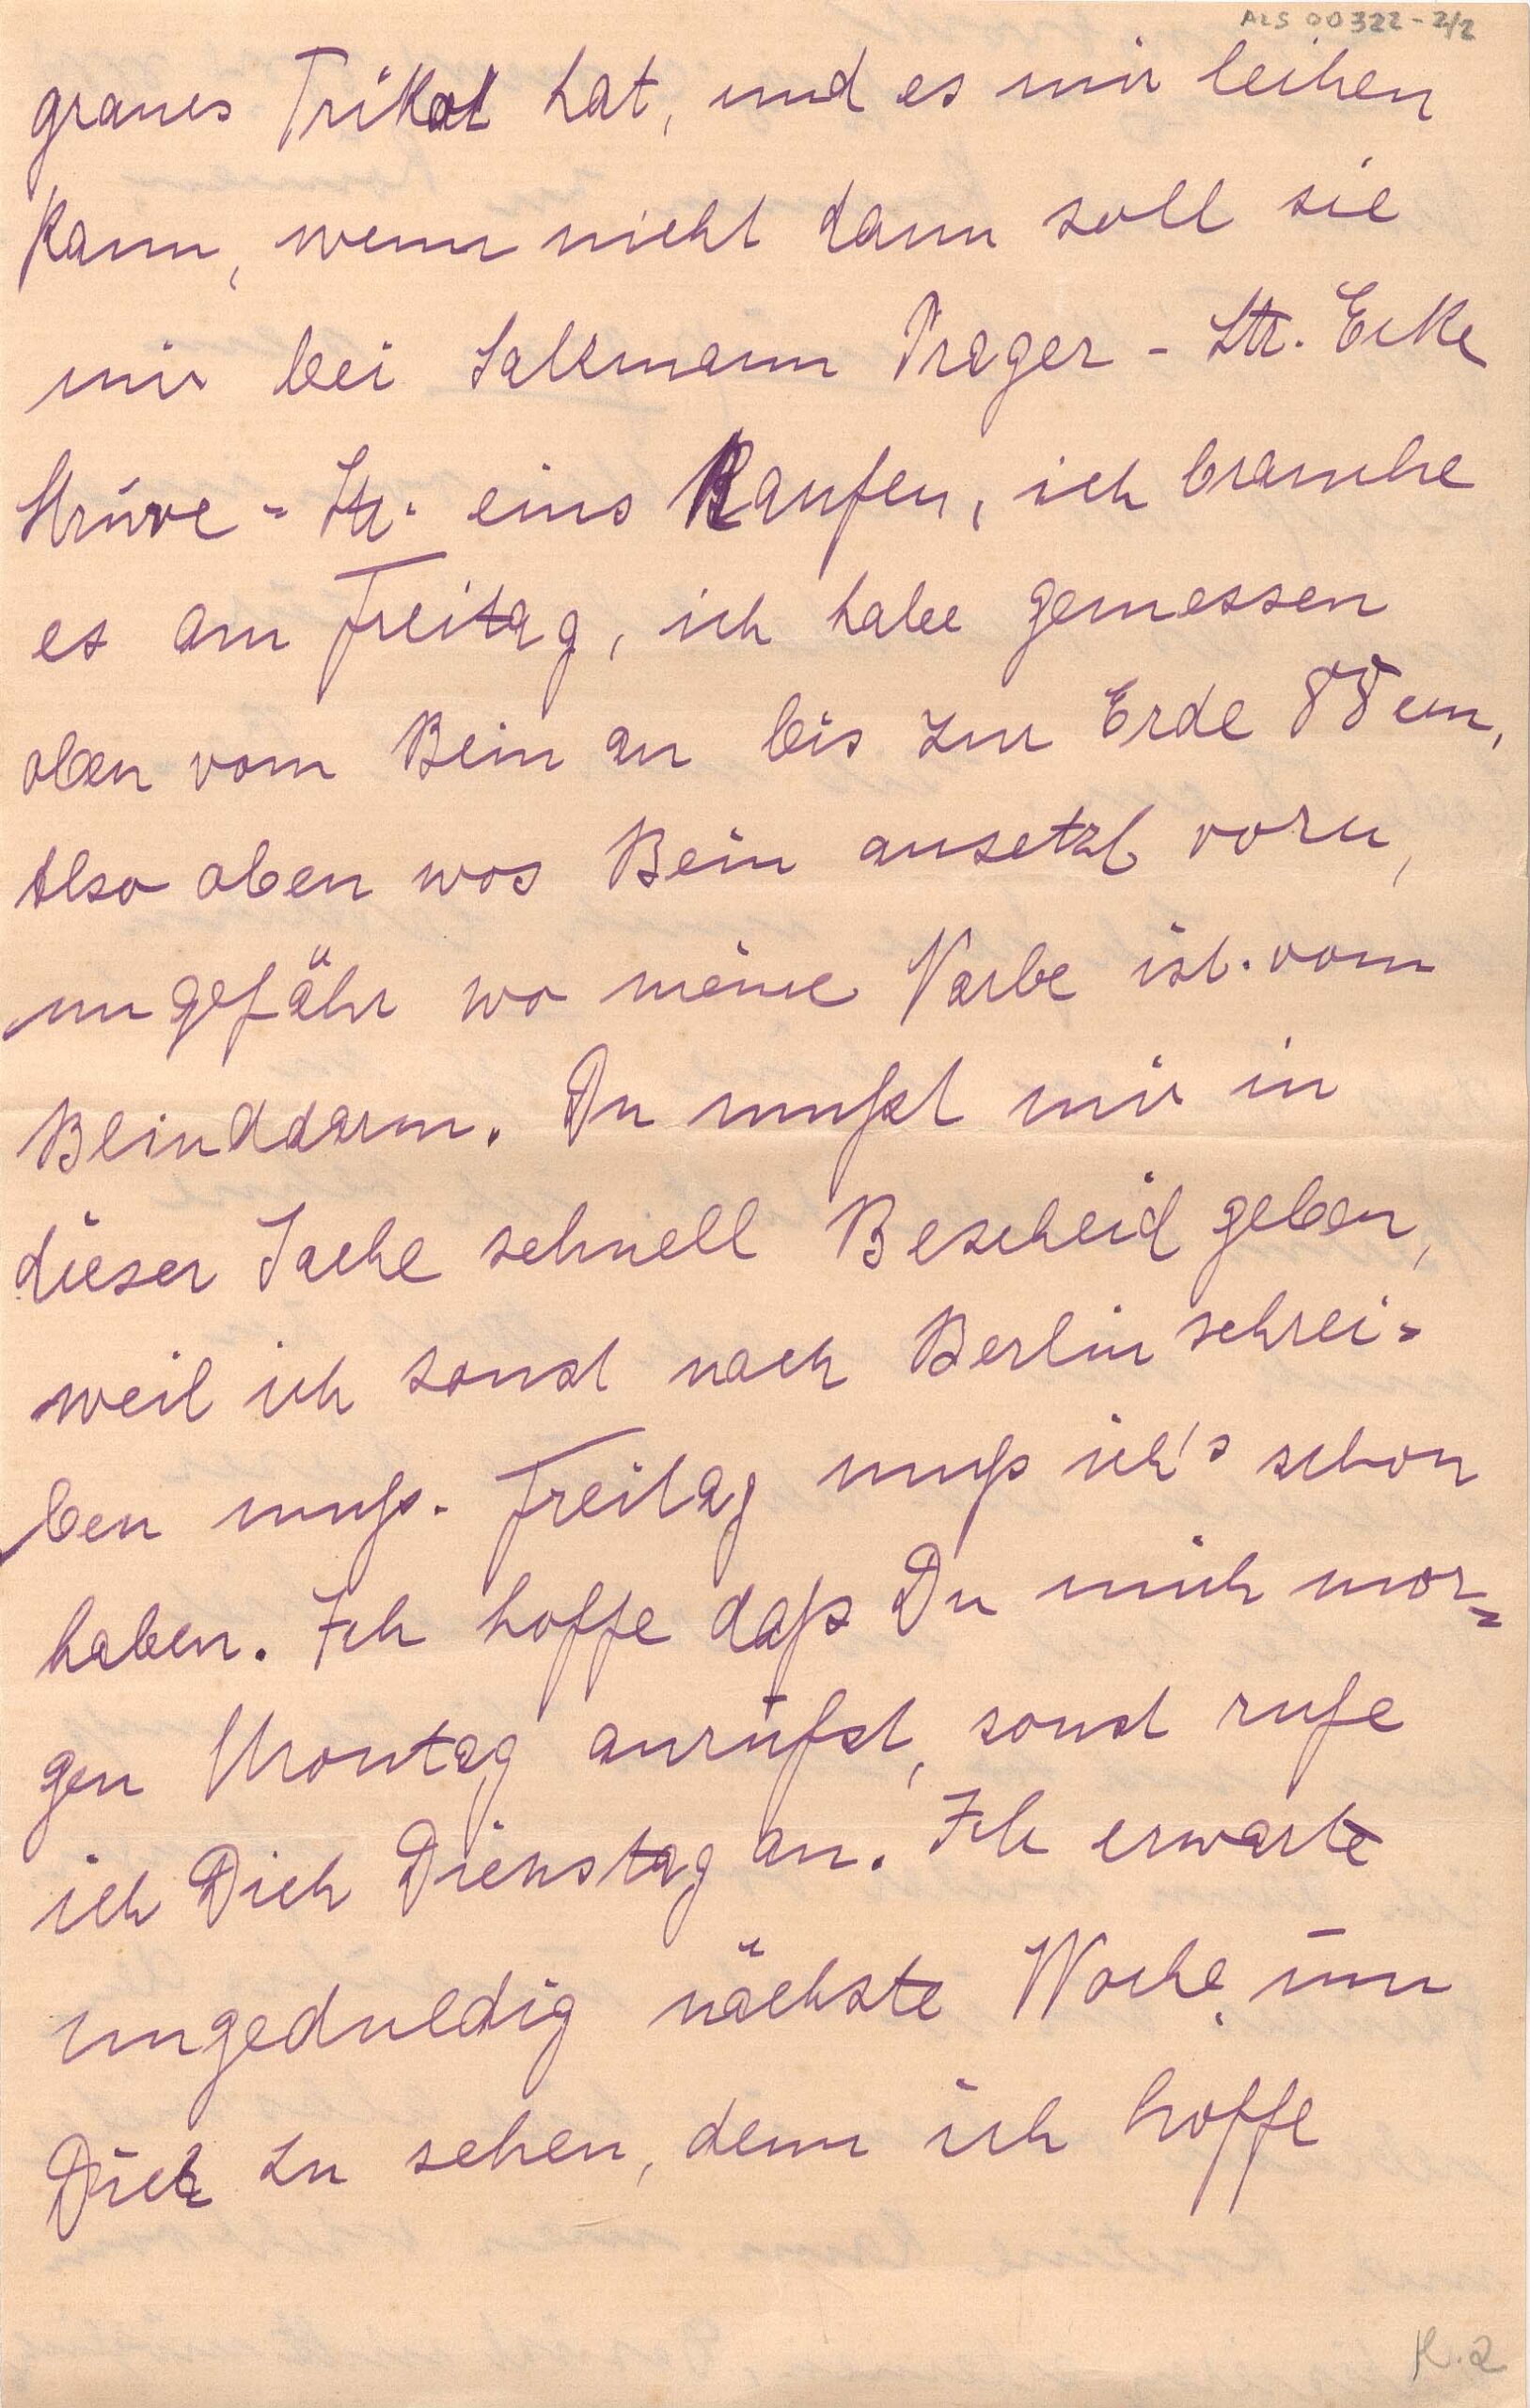 ALS 00322-2/2
graues Trikot hat, und es mir leihen
kann, wenn nicht dann soll sie
mir bei Salzmann Prager-Str. Ecke
Struve-Str. eins kaufen, ich brauche
es am Freitag, ich habe gemessen
oben vom Bein an bis zur Erde 88 cm,
also oben wos Bein ansetzt vorn,
ungefähr wo meine Narbe ist. vom
Blinddarm. Du mußt mir in
dieser Sache schnell Bescheid geben,
weil ich sonst nach Berlin schrei-
ben muß. Freitag muß ich's schon
haben. Ich hoffe daß Du mich mor-
gen Montag anrufst, sonst rufe
ich Dich Dienstag an. Ich erwarte
ungeduldig nächste Woche, um
Dich zu sehen, denn ich hoffe
K.2